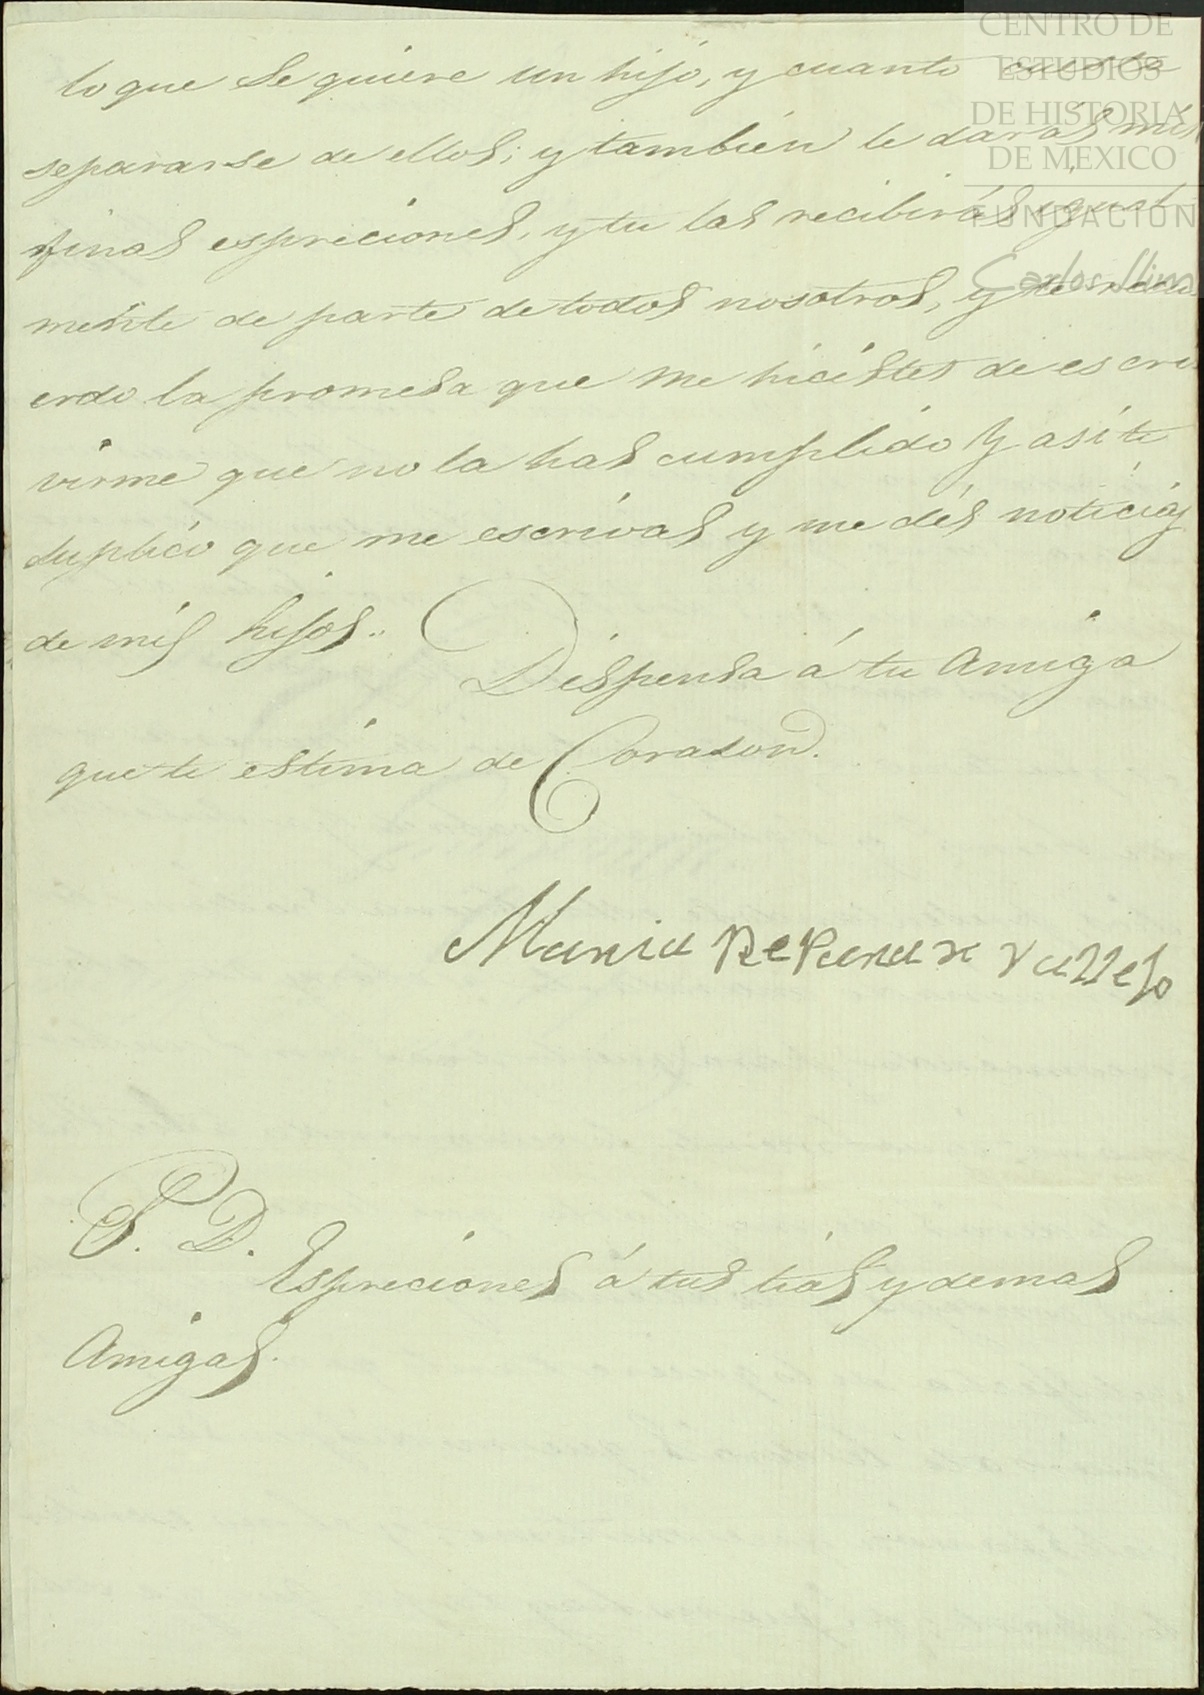 lo que se quiere un hijo, y cuanto cuesta
separarse de ellos; y también le darás mis
finas espreciones, y tu las recibirás igual
mente de parte de todos nosotros, y te recu
erdo la promesa que me hicistes de escri
virme que no la has cumplido y asi te
suplico que me escrivas y me dés noticias
de mis hijos..
Dispensa á tu Amiga
que te estima de Corason.
Maria de Vallejo
P. D.
Espreciones á tus tias y demas
Amigas.
CENTRO DE
ESTUDIOS
DE HISTORIA
DE MEXICO
FUNDACIÓN
Carlos Slim